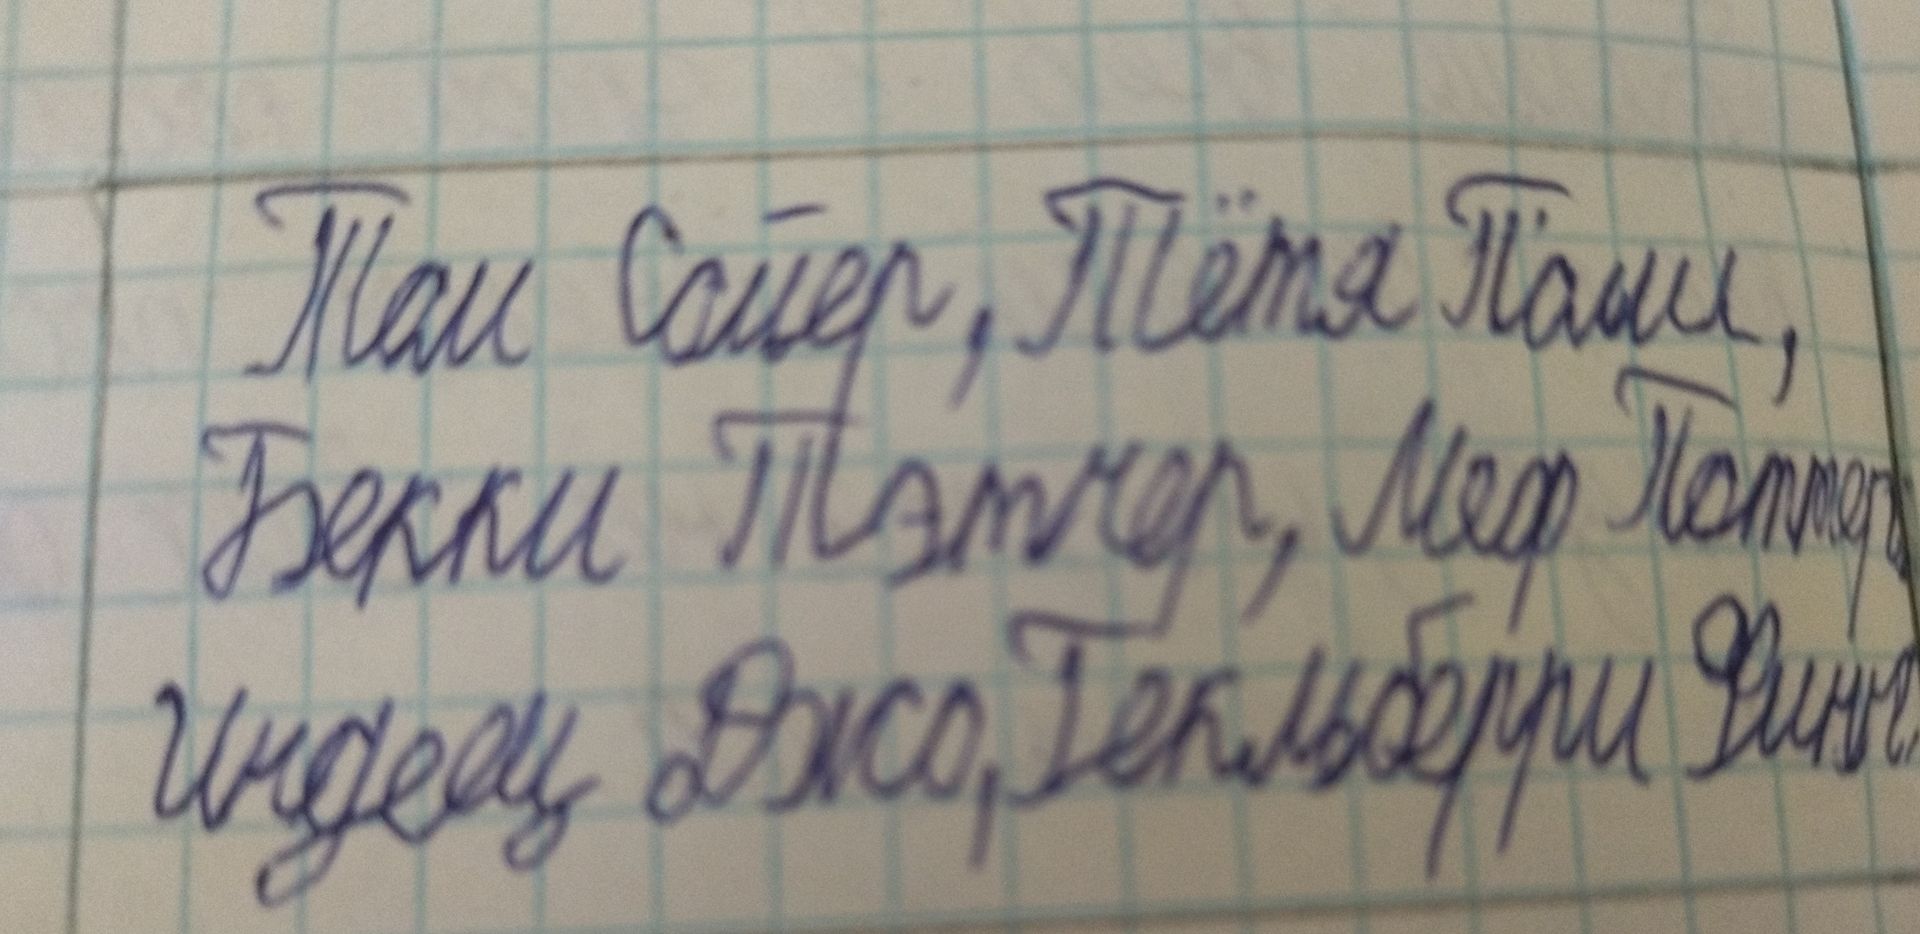 Том Сойер, Тётя Полли,
Бекки Тэтчер, Меф Поттер
Индеец Джо, Гекльберри Финн